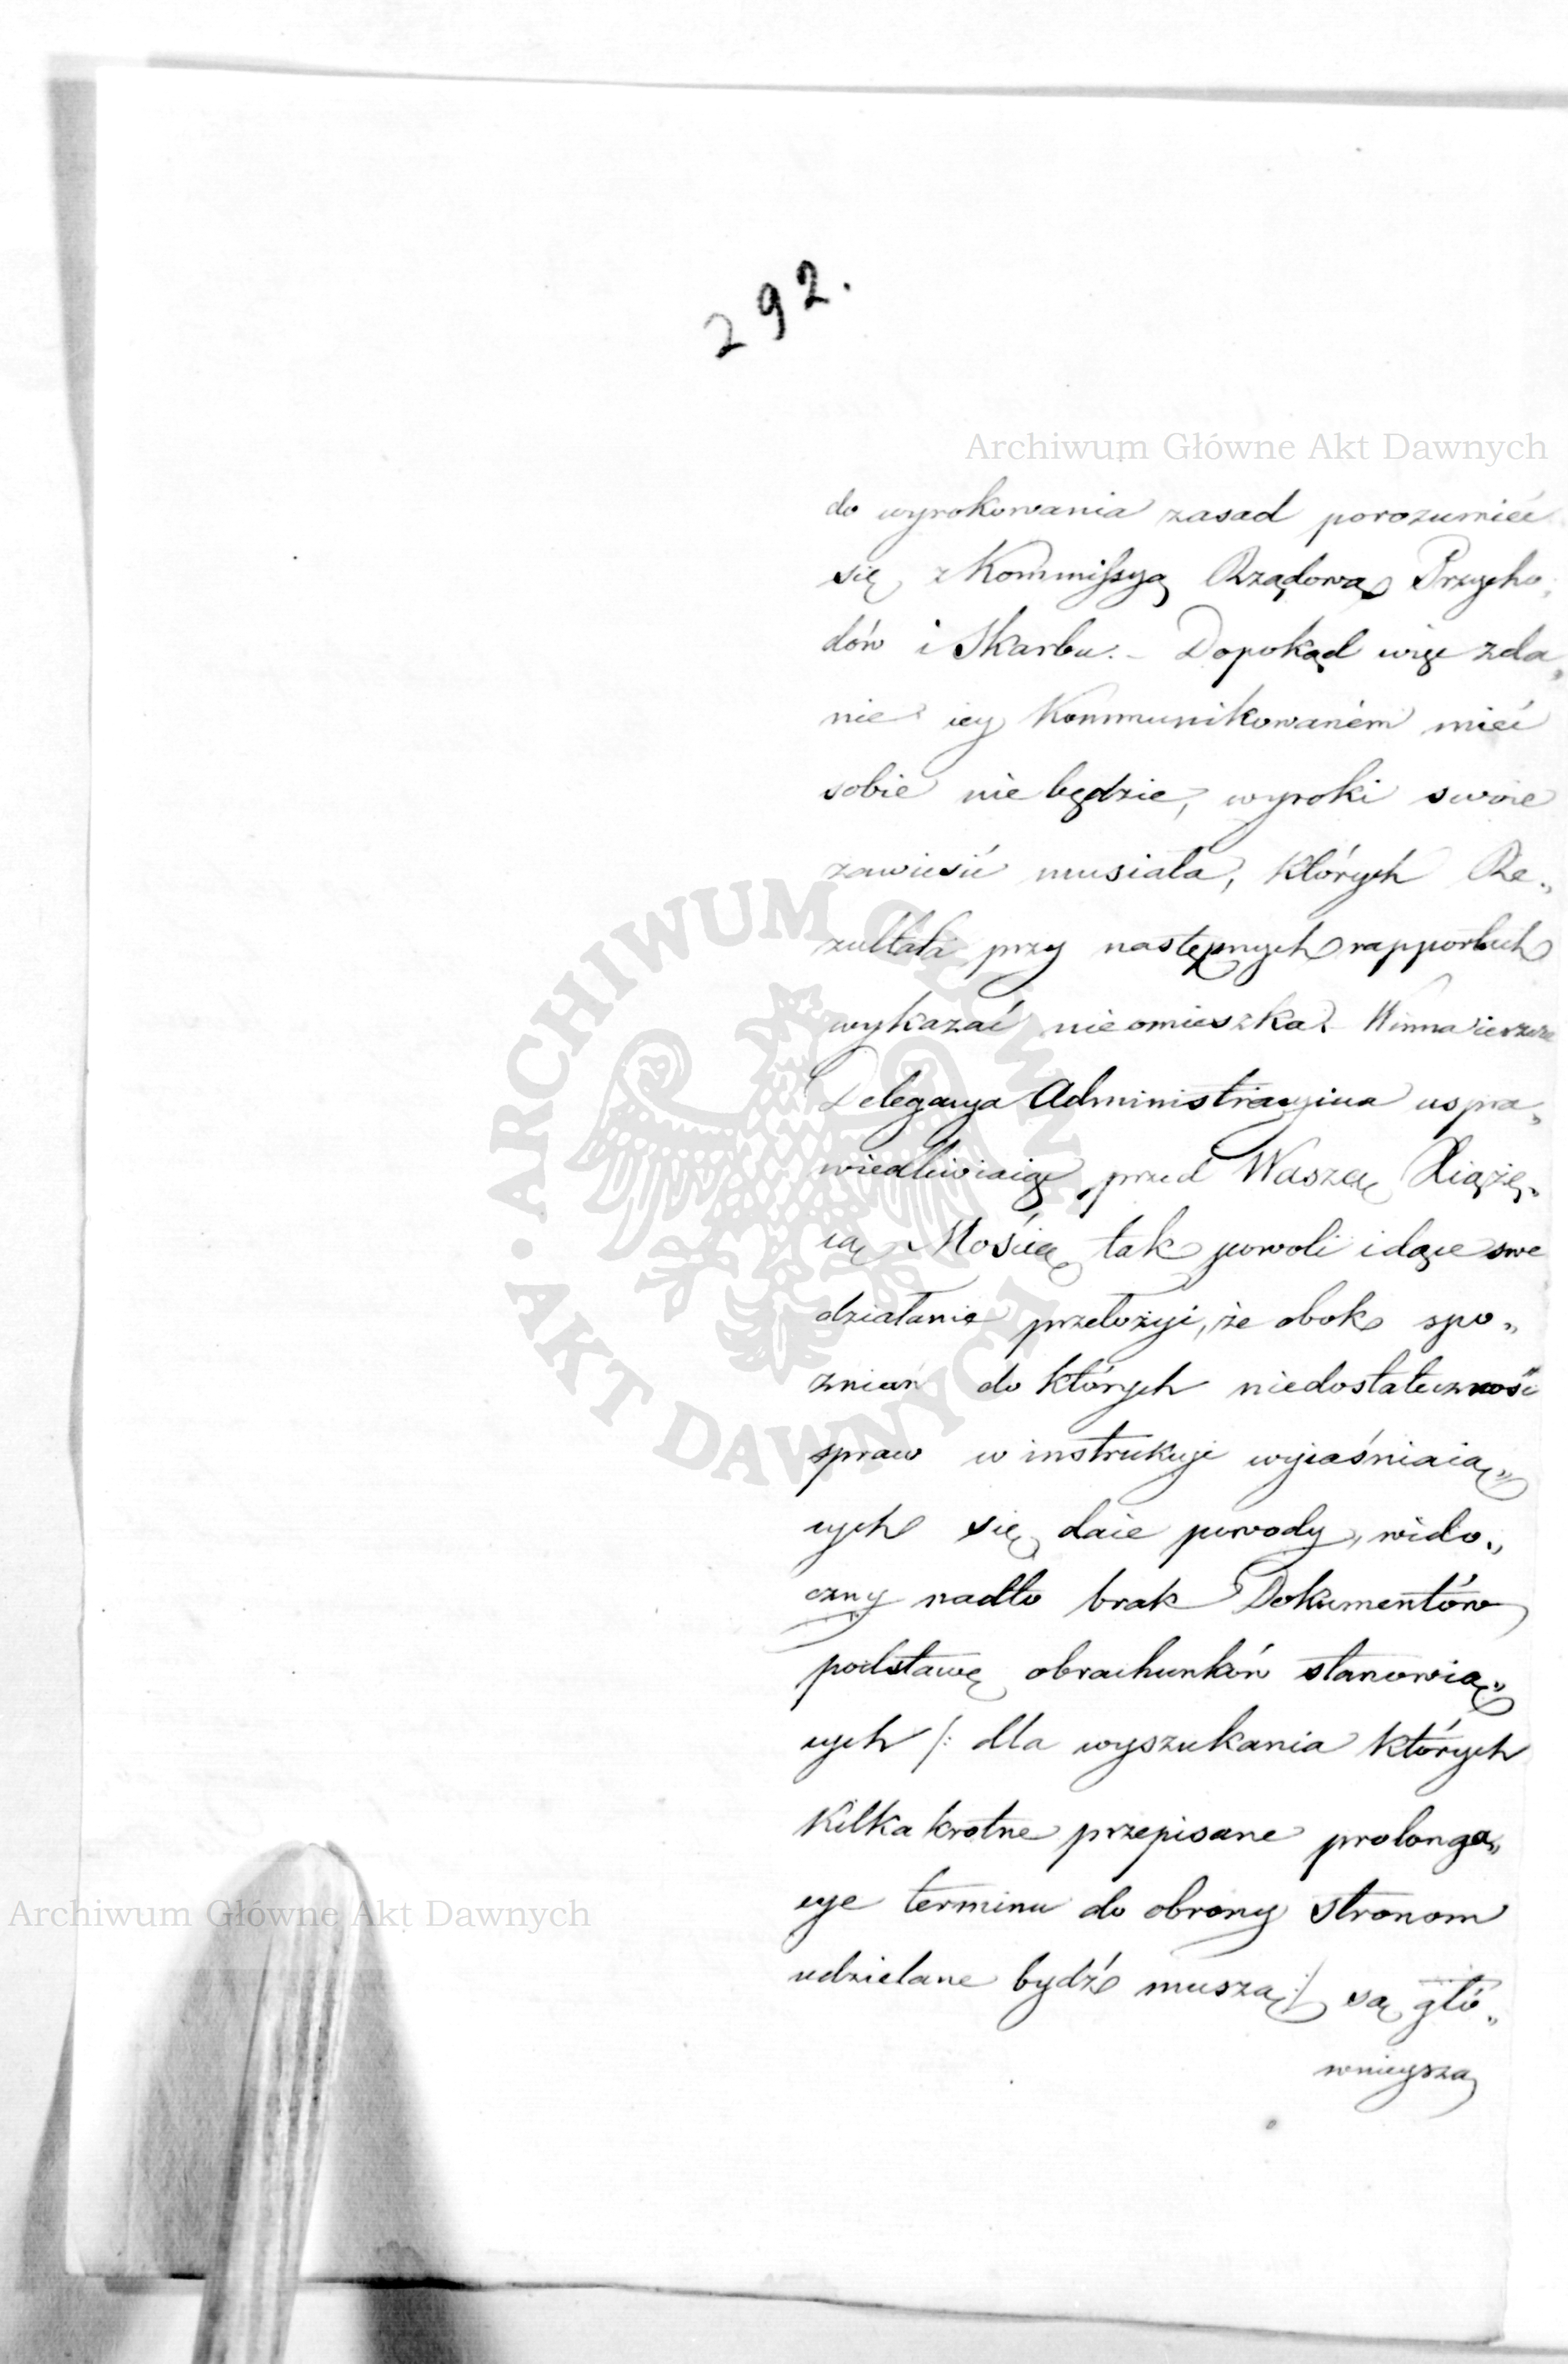 292.
Archiwum Główne Akt Dawnych
do wyrokowania zasad porozumieć
się z Kommissyą Rządową Przycho„
dów i Skarbu. – Dopokąd więc zda„
nie iey Kommunikowaném mieć
sobie nie będzie, wyroki swoie
zawiesić musiała, których Re„
zultata przy następnych rapportach
wykazać nieomieszka. Winna ieszcze
Delegacya Administracyina uspra„
wiedliwiaiąc przed Waszą Xiążę„
cą Mością tak powoli idące swe
działanie przełożyć, że obok spo„
znień do których niedostateczność
spraw w instrukcyi wyiaśniaią„
cych się daie powody, wido„
czny nadto brak Dokumentów
podstawę obrachunków stanowią„
cych /: dla wyszukania których
Kilka krotne przepisane prolonga„
cye terminu do obrony Stronom
udzielane bydź muszą :/ są głó„
wnieyszą
ARCHIWUM GŁÓWNE · AKT DAWNYCH ·
Archiwum Główne Akt Dawnych